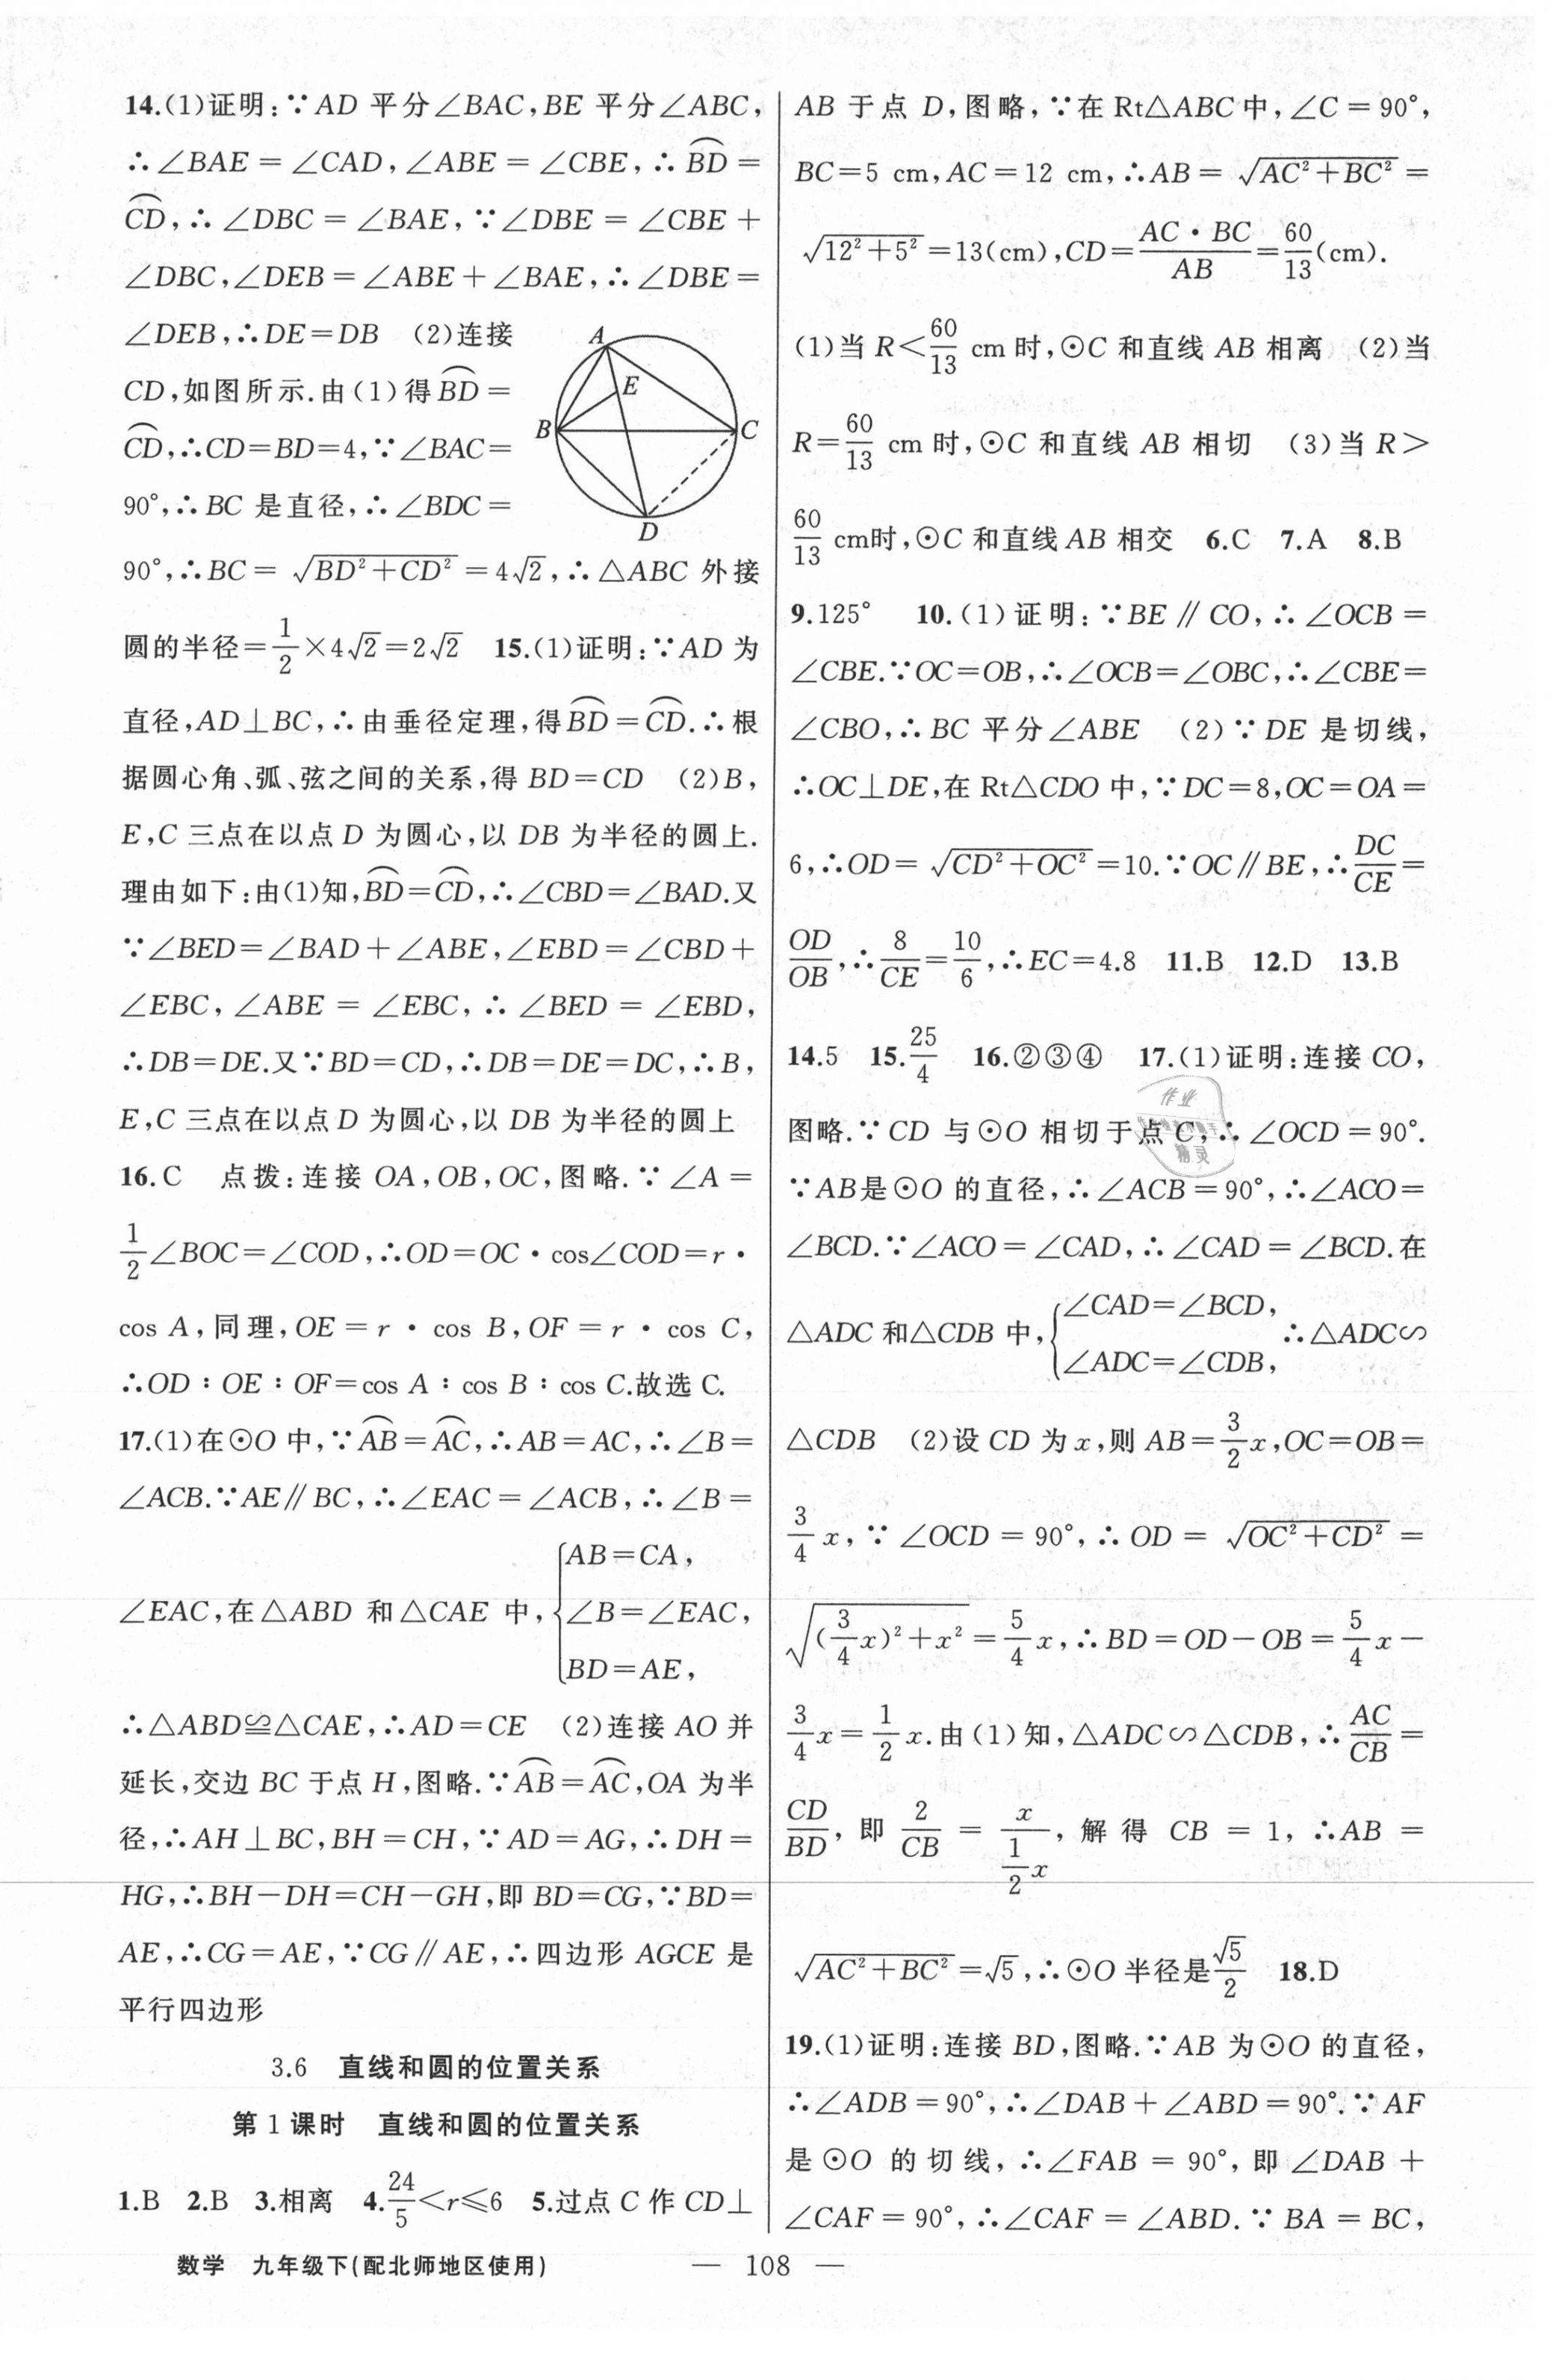 14.(1)证明:∵AD 平分∠BAC,BE 平分∠ABC,
∴∠BAE=∠CAD,∠ABE=∠CBE,∴⌒BD=
⌒CD,∴∠DBC=∠BAE,∵∠DBE=∠CBE+
∠DBC,∠DEB=∠ABE+∠BAE,∴∠DBE=
∠DEB,∴DE=DB (2)连接
CD,如图所示.由(1)得⌒BD=
⌒CD,∴CD=BD=4,∵∠BAC=
90°,∴BC 是直径,∴∠BDC=
A
E
B
C
D
90°,∴BC=√(BD²+CD²)=4√2,∴△ABC 外接
圆的半径=1/2×4√2=2√2 15.(1)证明:∵AD 为
直径,AD⊥BC,∴由垂径定理,得⌒BD=⌒CD.∴根
据圆心角、弧、弦之间的关系,得 BD=CD (2)B,
E,C 三点在以点 D 为圆心,以 DB 为半径的圆上.
理由如下:由(1)知,⌒BD=⌒CD,∴∠CBD=∠BAD.又
∵∠BED=∠BAD+∠ABE,∠EBD=∠CBD+
∠EBC,∠ABE=∠EBC,∴∠BED=∠EBD,
∴DB=DE.又∵BD=CD,∴DB=DE=DC,∴B,
E,C 三点在以点 D 为圆心,以 DB 为半径的圆上
16.C 点拨:连接 OA,OB,OC,图略.∵∠A=
1/2∠BOC=∠COD,∴OD=OC·cos∠COD=r·
cos A,同理,OE=r·cos B,OF=r·cos C,
∴OD∶OE∶OF=cos A∶cos B∶cos C.故选 C.
17.(1)在⊙O 中,∵⌒AB=⌒AC,∴AB=AC,∴∠B=
∠ACB.∵AE∥BC,∴∠EAC=∠ACB,∴∠B=
∠EAC,在△ABD 和△CAE 中,{AB=CA, ∠B=∠EAC, BD=AE,
∴△ABD≌△CAE,∴AD=CE (2)连接 AO 并
延长,交边 BC 于点 H,图略.∵⌒AB=⌒AC,OA 为半
径,∴AH⊥BC,BH=CH,∵AD=AG,∴DH=
HG,∴BH-DH=CH-GH,即 BD=CG,∵BD=
AE,∴CG=AE,∵CG∥AE,∴四边形 AGCE 是
平行四边形
3.6 直线和圆的位置关系
第 1 课时 直线和圆的位置关系
1.B 2.B 3.相离 4.24/5<r≤6 5.过点 C 作 CD⊥
AB 于点 D,图略,∵在 Rt△ABC 中,∠C=90°,
BC=5 cm,AC=12 cm,∴AB=√(AC²+BC²)=
√(12²+5²)=13(cm),CD=AC·BC/AB=60/13(cm).
(1)当 R<60/13 cm 时,⊙C 和直线 AB 相离 (2)当
R=60/13 cm 时,⊙C 和直线 AB 相切 (3)当 R>
60/13 cm时,⊙C 和直线 AB 相交 6.C 7.A 8.B
9.125° 10.(1)证明:∵BE∥CO,∴∠OCB=
∠CBE.∵OC=OB,∴∠OCB=∠OBC,∴∠CBE=
∠CBO,∴BC 平分∠ABE (2)∵DE 是切线,
∴OC⊥DE,在 Rt△CDO 中,∵DC=8,OC=OA=
6,∴OD=√(CD²+OC²)=10.∵OC∥BE,∴DC/CE=
OD/OB,∴8/CE=10/6,∴EC=4.8 11.B 12.D 13.B
14.5 15.25/4 16.②③④ 17.(1)证明:连接 CO,
图略.∵CD 与⊙O 相切于点 C,∴∠OCD=90°.
∵AB是⊙O 的直径,∴∠ACB=90°,∴∠ACO=
∠BCD.∵∠ACO=∠CAD,∴∠CAD=∠BCD.在
△ADC 和△CDB 中,{∠CAD=∠BCD, ∠ADC=∠CDB, ∴△ADC∽
△CDB (2)设 CD 为 x,则 AB=3/2x,OC=OB=
3/4x,∵∠OCD=90°,∴OD=√(OC²+CD²)=
√((3/4x)²+x²)=5/4x,∴BD=OD-OB=5/4x-
3/4x=1/2x.由(1)知,△ADC∽△CDB,∴AC/CB=
CD/BD,即 2/CB=x/(1/2x),解得 CB=1,∴AB=
√(AC²+BC²)=√5,∴⊙O 半径是√5/2 18.D
19.(1)证明:连接 BD,图略.∵AB 为⊙O 的直径,
∴∠ADB=90°,∴∠DAB+∠ABD=90°.∵AF
是⊙O 的切线,∴∠FAB=90°,即∠DAB+
∠CAF=90°,∴∠CAF=∠ABD.∵BA=BC,
作业
精灵
数学 九年级下(配北师地区使用) — 108 —